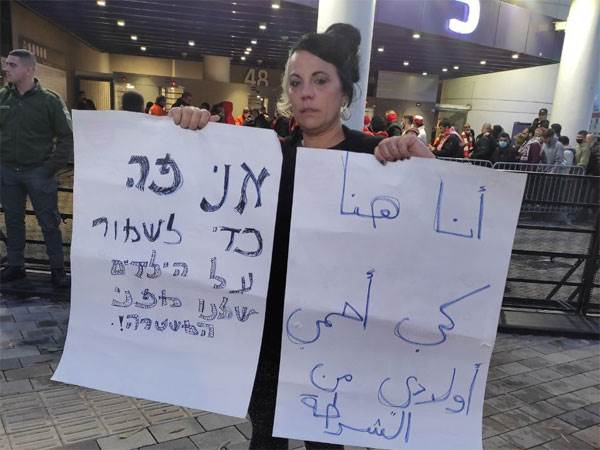 48
אני פה
כדי לשמור
על הילדים
שלנו מפני
המשטרה!.
أنا هنا
كي أحمي
أولادي من
الشرطة